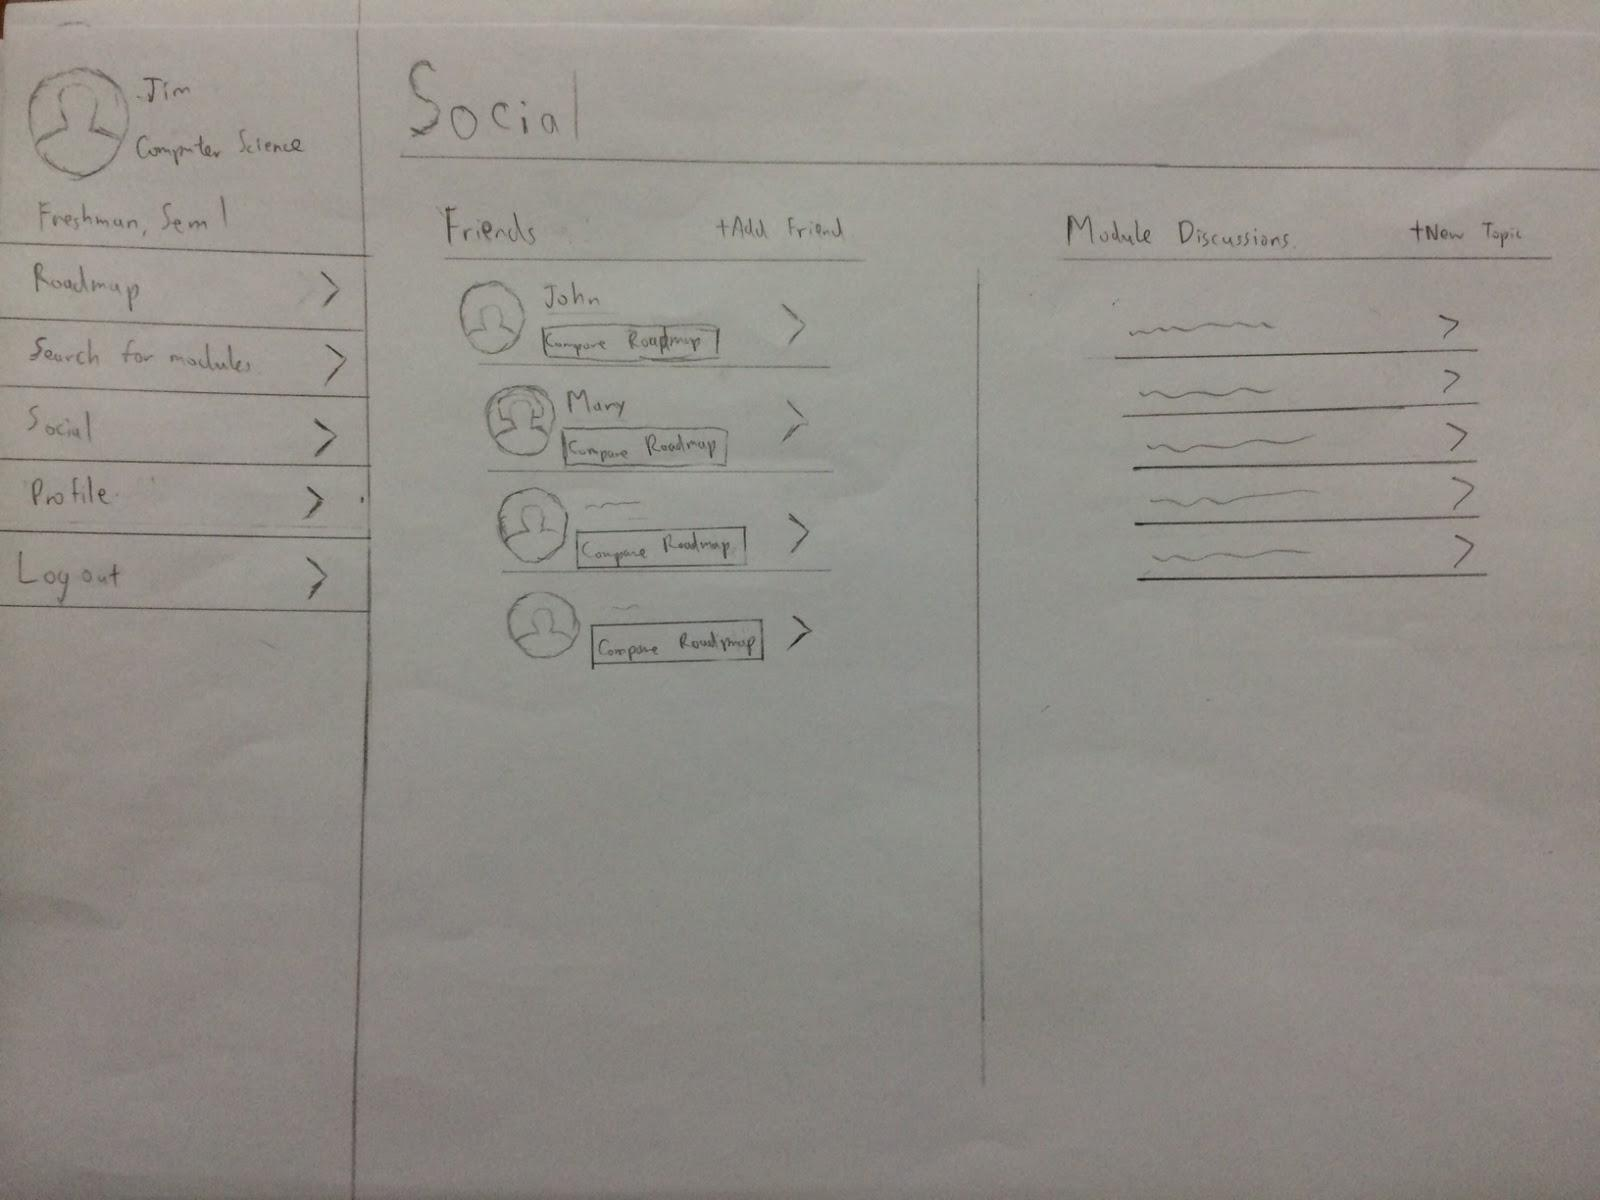 Jim
Computer Science
Freshman, Sem 1
Roadmap >
Search for modules >
Social >
Profile >
Log out >
Social
Friends +Add Friend
John
Compare Roadmap >
Mary
Compare Roadmap >
Compare Roadmap >
Compare Roadmap >
Module Discussions +New Topic
>
>
>
>
>